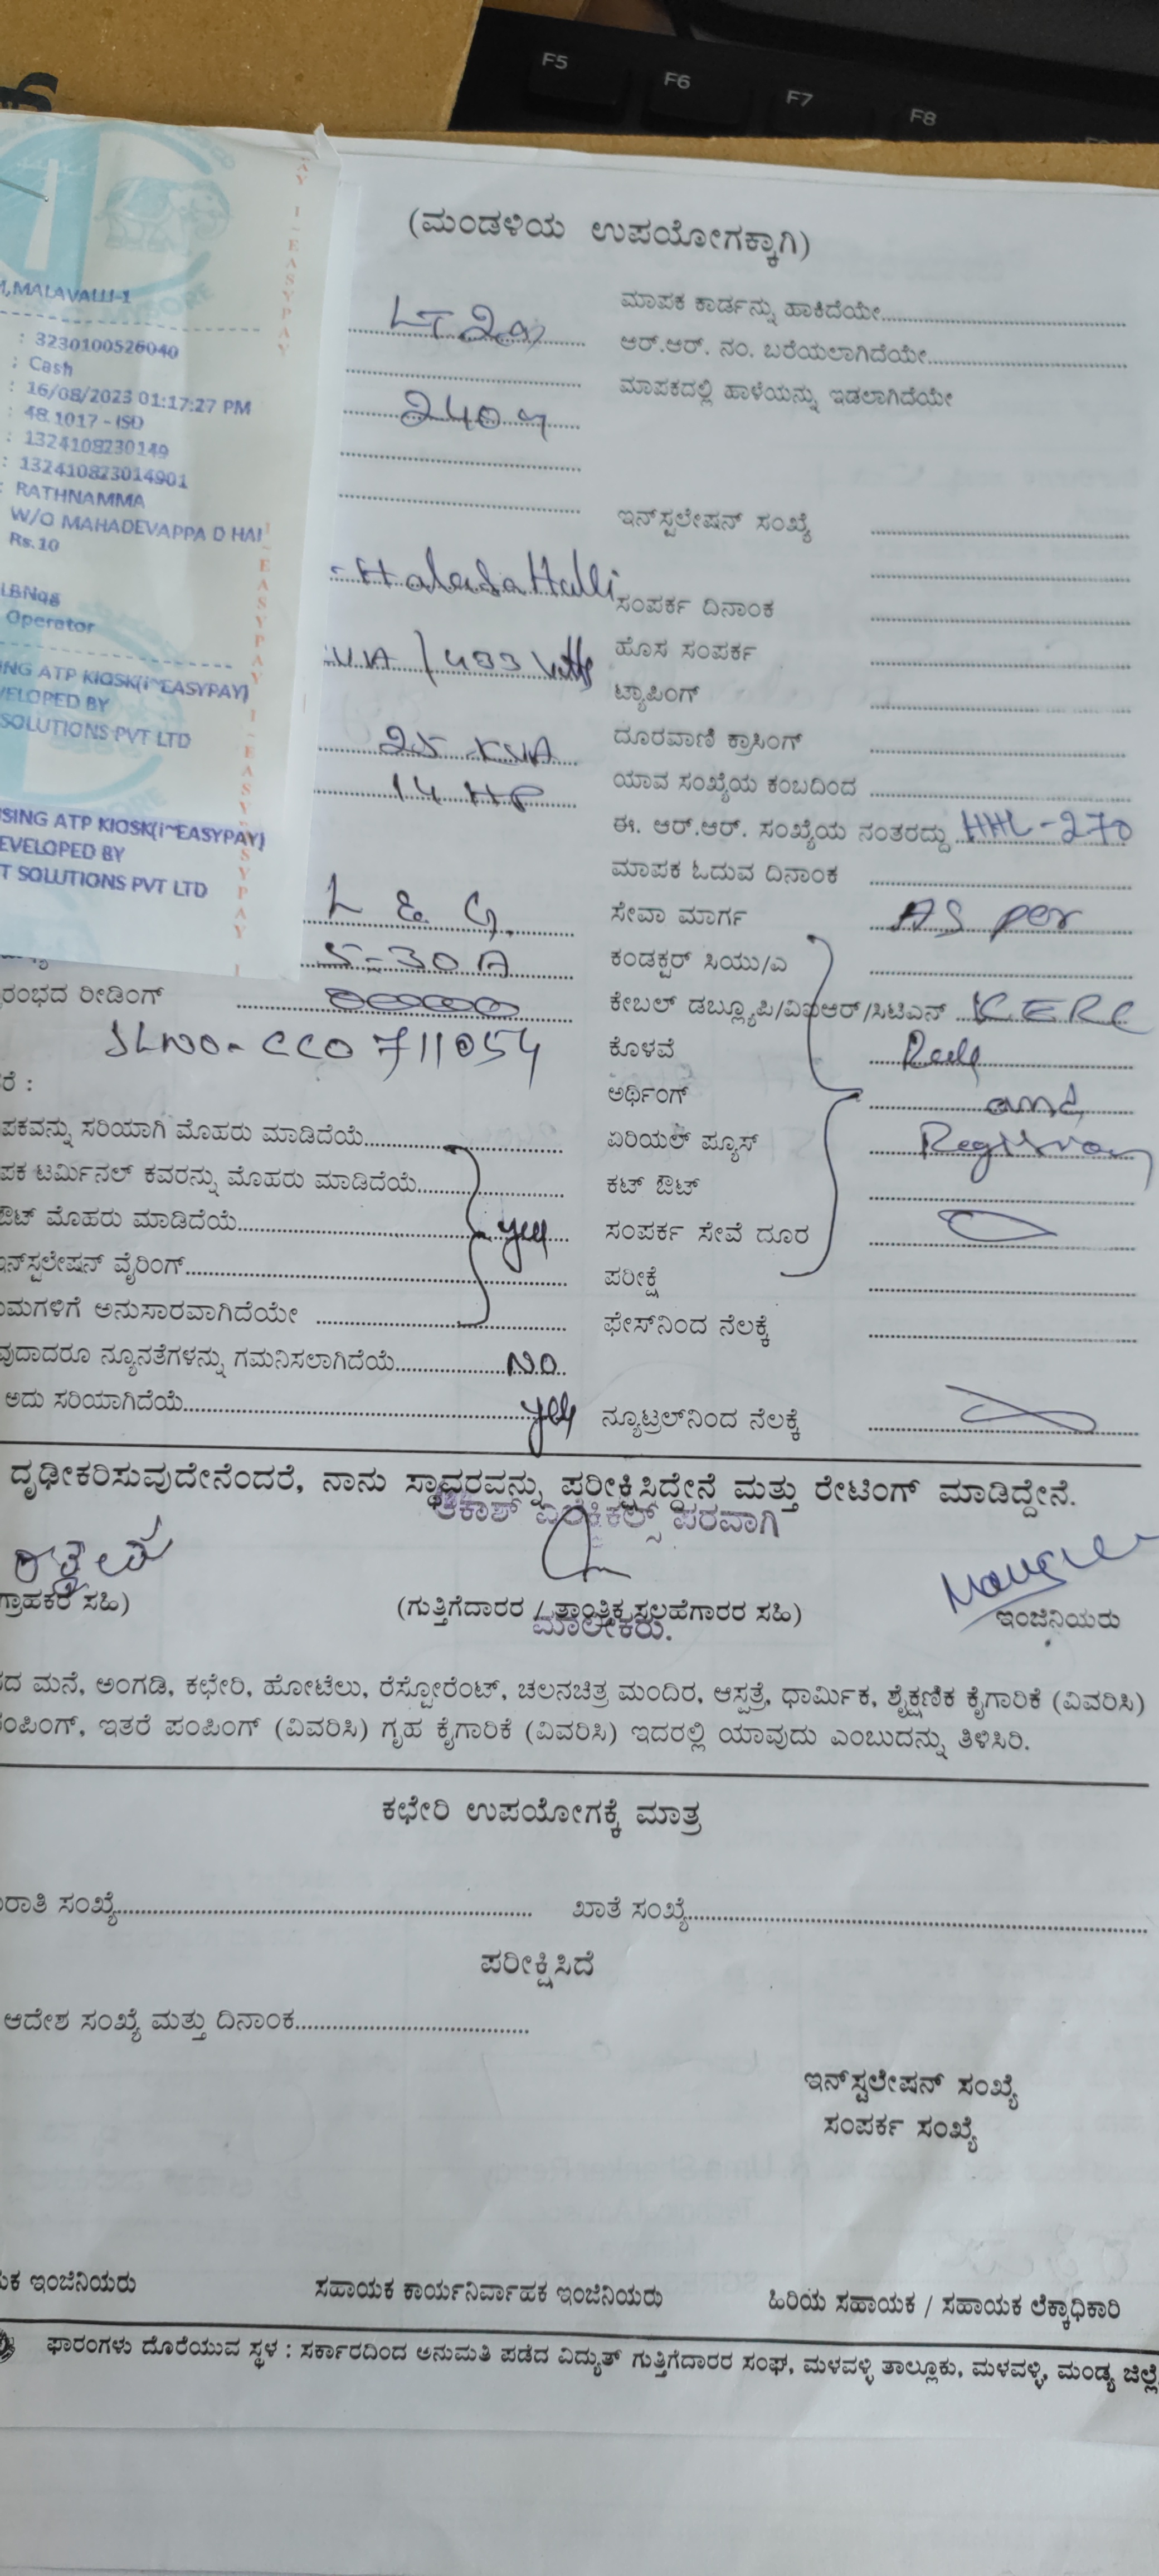 F5
F6
F7
F8
M,MALAVALLI-1
: 3230100526040
: Cash
: 16/08/2023 01:17:27 PM
: 48.1017 - ISD
: 1324108230149
: 132410823014901
: RATHNAMMA
W/O MAHADEVAPPA D HAL
Rs.10
LBN98
Operator
ING ATP KIOSK(i~EASYPAY)
VELOPED BY
SOLUTIONS PVT LTD
SING ATP KIOSK(i~EASYPAY)
EVELOPED BY
T SOLUTIONS PVT LTD
AY 1-EASYPAY
1-EASYPAY 1-EASYPAY
(ಮಂಡಳಿಯ ಉಪಯೋಗಕ್ಕಾಗಿ)
LT 2a ಮಾಪಕ ಕಾರ್ಡನ್ನು ಹಾಕಿದೆಯೇ
ಆರ್.ಆರ್. ನಂ. ಬರೆಯಲಾಗಿದೆಯೇ
240 ಮಾಪಕದಲ್ಲಿ ಹಾಳೆಯನ್ನು ಇಡಲಾಗಿದೆಯೇ
ಇನ್‌ಸ್ಪಲೇಷನ್ ಸಂಖ್ಯೆ
HaladaHalli ಸಂಪರ್ಕ ದಿನಾಂಕ
/ 433 Watts ಹೊಸ ಸಂಪರ್ಕ
ಟ್ಯಾಪಿಂಗ್
25 KVA ದೂರವಾಣಿ ಕ್ರಾಸಿಂಗ್
14 HP ಯಾವ ಸಂಖ್ಯೆಯ ಕಂಬದಿಂದ
ಈ. ಆರ್.ಆರ್. ಸಂಖ್ಯೆಯ ನಂತರದ್ದು HHL-270
ಮಾಪಕ ಓದುವ ದಿನಾಂಕ
L & G. ಸೇವಾ ಮಾರ್ಗ AS per
5-30 A ಕಂಡಕ್ಟರ್ ಸಿಯು/ಎ
ರಂಭದ ರೀಡಿಂಗ್ 00000 ಕೇಬಲ್ ಡಬ್ಲ್ಯೂಪಿ/ವಿಐಆರ್/ಸಿಟಿಎಸ್ KERC
SLNO- CCO 711054 ಕೊಳವೆ Rules
ರೆ : ಅರ್ಥಿಂಗ್ and
ಪಕವನ್ನು ಸರಿಯಾಗಿ ಮೊಹರು ಮಾಡಿದೆಯೆ ಏರಿಯಲ್ ಪ್ಯೂಸ್
ಪಕ ಟರ್ಮಿನಲ್ ಕವರನ್ನು ಮೊಹರು ಮಾಡಿದೆಯೆ ಕಟ್ ಔಟ್
ಔಟ್ ಮೊಹರು ಮಾಡಿದೆಯೆ yes ಸಂಪರ್ಕ ಸೇವೆ ದೂರ
ಇನ್‌ಸ್ಟಲೇಷನ್ ವೈರಿಂಗ್ ಪರೀಕ್ಷೆ
ಯಮಗಳಿಗೆ ಅನುಸಾರವಾಗಿದೆಯೇ ಫೇಸ್‌ನಿಂದ ನೆಲಕ್ಕೆ
ವುದಾದರೂ ನ್ಯೂನತೆಗಳನ್ನು ಗಮನಿಸಲಾಗಿದೆಯೆ NO
ಅದು ಸರಿಯಾಗಿದೆಯೆ yes ನ್ಯೂಟ್ರಲ್‌ನಿಂದ ನೆಲಕ್ಕೆ
ದೃಢೀಕರಿಸುವುದೇನೆಂದರೆ, ನಾನು ಸ್ಥಾವರವನ್ನು ಪರೀಕ್ಷಿಸಿದ್ದೇನೆ ಮತ್ತು ರೇಟಿಂಗ್ ಮಾಡಿದ್ದೇನೆ.
ಆಕಾಶ್ ಎಲೆಕ್ಟ್ರಿಕಲ್ಸ್ ಪರವಾಗಿ
ಗ್ರಾಹಕರ ಸಹಿ) (ಗುತ್ತಿಗೆದಾರರ / ತಾಂತ್ರಿಕ ಸಲಹೆಗಾರರ ಸಹಿ) ಇಂಜಿನಿಯರು
ಮಾಲೀಕರು.
ದ ಮನೆ, ಅಂಗಡಿ, ಕಛೇರಿ, ಹೋಟೆಲು, ರೆಸ್ಟೋರೆಂಟ್, ಚಲನಚಿತ್ರ ಮಂದಿರ, ಆಸ್ಪತ್ರೆ, ಧಾರ್ಮಿಕ, ಶೈಕ್ಷಣಿಕ ಕೈಗಾರಿಕೆ (ವಿವರಿಸಿ)
ಂಪಿಂಗ್, ಇತರೆ ಪಂಪಿಂಗ್ (ವಿವರಿಸಿ) ಗೃಹ ಕೈಗಾರಿಕೆ (ವಿವರಿಸಿ) ಇದರಲ್ಲಿ ಯಾವುದು ಎಂಬುದನ್ನು ತಿಳಿಸಿರಿ.
ಕಛೇರಿ ಉಪಯೋಗಕ್ಕೆ ಮಾತ್ರ
ರಾತಿ ಸಂಖ್ಯೆ ಖಾತೆ ಸಂಖ್ಯೆ
ಪರೀಕ್ಷಿಸಿದೆ
ಆದೇಶ ಸಂಖ್ಯೆ ಮತ್ತು ದಿನಾಂಕ
ಇನ್‌ಸ್ಟಲೇಷನ್ ಸಂಖ್ಯೆ
ಸಂಪರ್ಕ ಸಂಖ್ಯೆ
ಯಕ ಇಂಜಿನಿಯರು ಸಹಾಯಕ ಕಾರ್ಯನಿರ್ವಾಹಕ ಇಂಜಿನಿಯರು ಹಿರಿಯ ಸಹಾಯಕ / ಸಹಾಯಕ ಲೆಕ್ಕಾಧಿಕಾರಿ
ಫಾರಂಗಳು ದೊರೆಯುವ ಸ್ಥಳ : ಸರ್ಕಾರದಿಂದ ಅನುಮತಿ ಪಡೆದ ವಿದ್ಯುತ್ ಗುತ್ತಿಗೆದಾರರ ಸಂಘ, ಮಳವಳ್ಳಿ ತಾಲ್ಲೂಕು, ಮಳವಳ್ಳಿ, ಮಂಡ್ಯ ಜಿಲ್ಲೆ